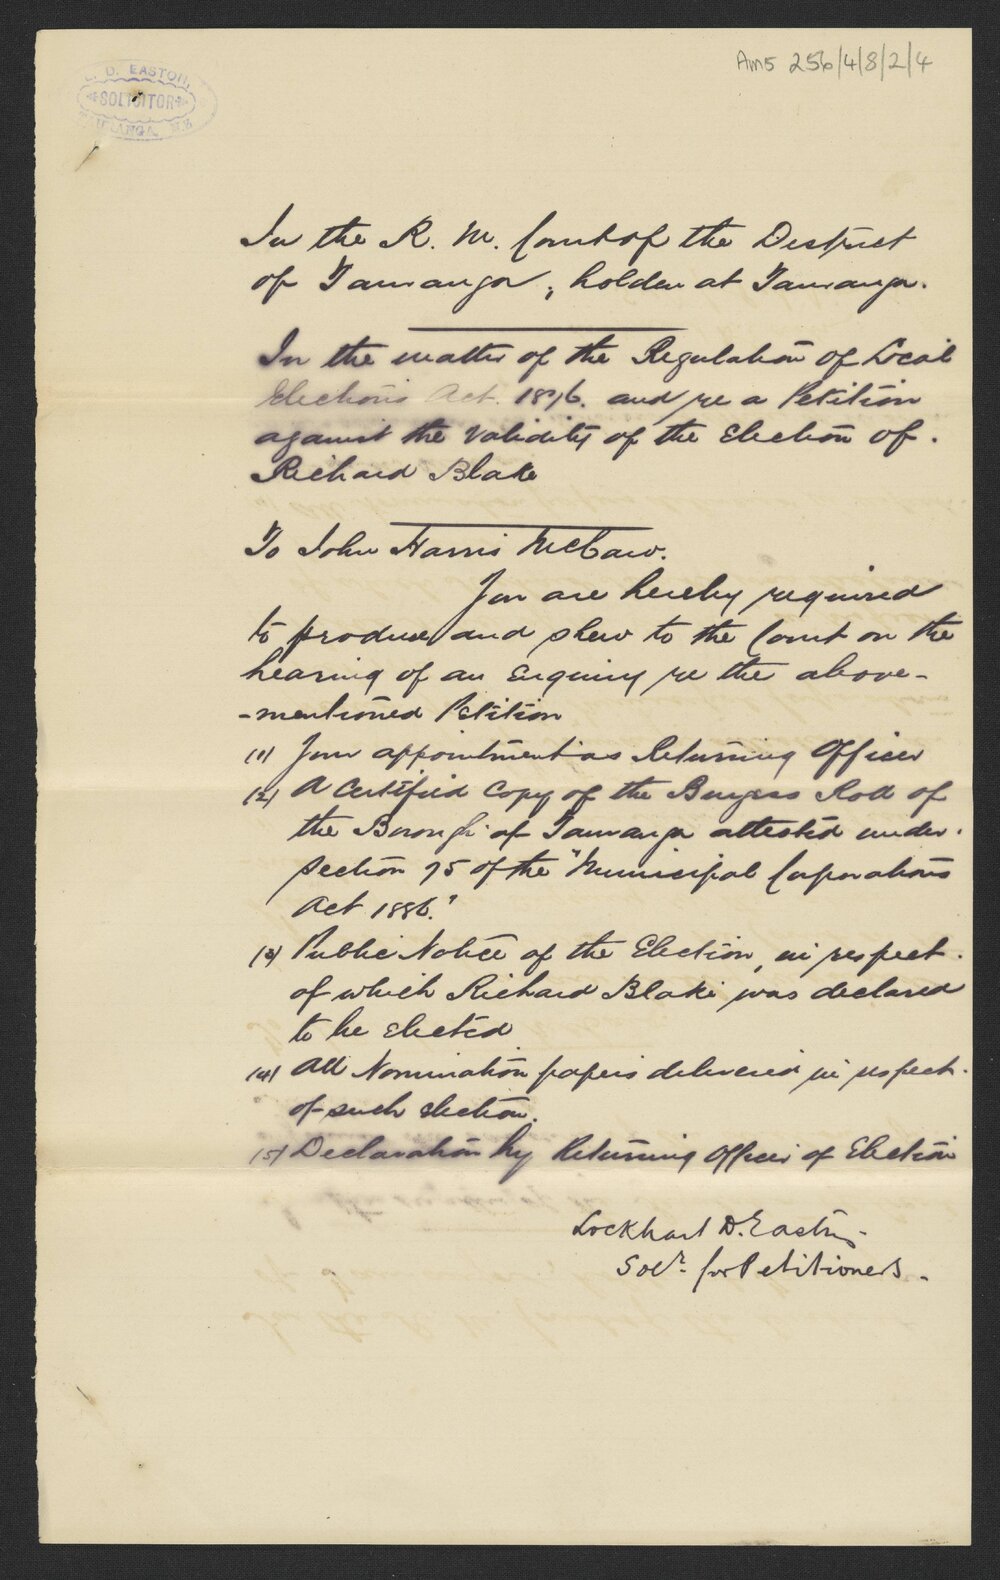 Ams 256/4/8/2/4
L. D. EASTON,
SOLICITOR
TAURANGA, N.Z.
In the R. M. Court of the District
of Tauranga, holden at Tauranga.
In the matter of the Regulation of Local
Elections Act. 1876. and re a Petition
against the validity of the Election of.
Richard Blake
To John Harris McCaw.
You are hereby required
to produce and shew to the Court on the
hearing of an Enquiry re the above-
-mentioned Petition
(1) Your appointment as Returning Officer
(2) A Certified Copy of the Burgess Roll of
the Borough of Tauranga attested under
section 75 of the "Municipal Corporations
Act 1886."
(3) Public Notice of the Election, in respect
of which Richard Blake was declared
to be Elected
(4) All Nomination papers delivered in respect
of such election.
(5) Declaration by Returning Officer of Election
Lockhart D. Easton
Solr. for Petitioners.